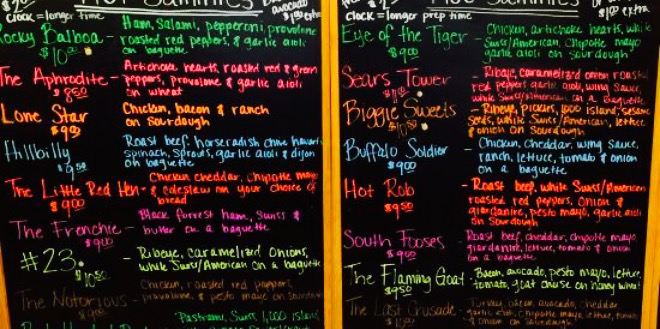 Clock = longer prep time
avocado
Rocky Balboa - Ham, Salami, pepperoni, provolone
roasted red peppers, & garlic aioli
on baguette
The Aphrodite - Artichoke hearts, roasted red & green
peppers, provolone & garlic aioli
on wheat
$8.50
Lone Star
$9.00
Chicken, bacon & ranch
on sourdough
Hillbilly
Roast beef, horseradish chive havarti
spinach, sprouts, garlic aioli & dijon
on baguette
The Little Red Hen - Chicken, cheddar, chipotle mayo
& coleslaw on your choice of
bread
$9.00
The Frenchie - Black forrest ham, Swiss &
butter on a baguette
$9.00
#23 - Ribeye, caramelized onions,
white Swiss/American on a baguette
$10.50
The Notorious - Chicken, roasted red peppers,
provolone, & pesto mayo on sourdough
Pastrami, Swiss, 1,000 island
Clock = longer prep time
Eye of the Tiger - Chicken, artichoke hearts, white
Swiss/American, Chipotle mayo
garlic aioli on sourdough
$9.00
Sears Tower - Ribeye, caramelized onion, roasted
red peppers, garlic aioli, wing sauce,
white Swiss/American on a baguette
Biggie Sweets - Ribeye, pickles, 1000 island, sesame
seeds, white Swiss/American, lettuce
& onion on Sourdough
$10.50
Buffalo Soldier - Chicken, Cheddar, wing sauce,
ranch, lettuce, tomato & onion
on a baguette
$9.00
Hot Rob - Roast beef, white Swiss/American
roasted red peppers, onion &
giardanire, pesto mayo, garlic aioli
on Sourdough
$9.50
South Fooses - Roast beef, cheddar, chipotle mayo,
giardanire, lettuce, tomato & onion
on a baguette
$9.00
The Flaming Goat - Bacon, avocado, pesto mayo, lettuce,
tomato, goat cheese on honey wheat
$9.50
The Last Crusade - Turkey, bacon, avocado, cheddar
garlic aioli, chipotle mayo, lettuce, tomato
& onion on Sourdough